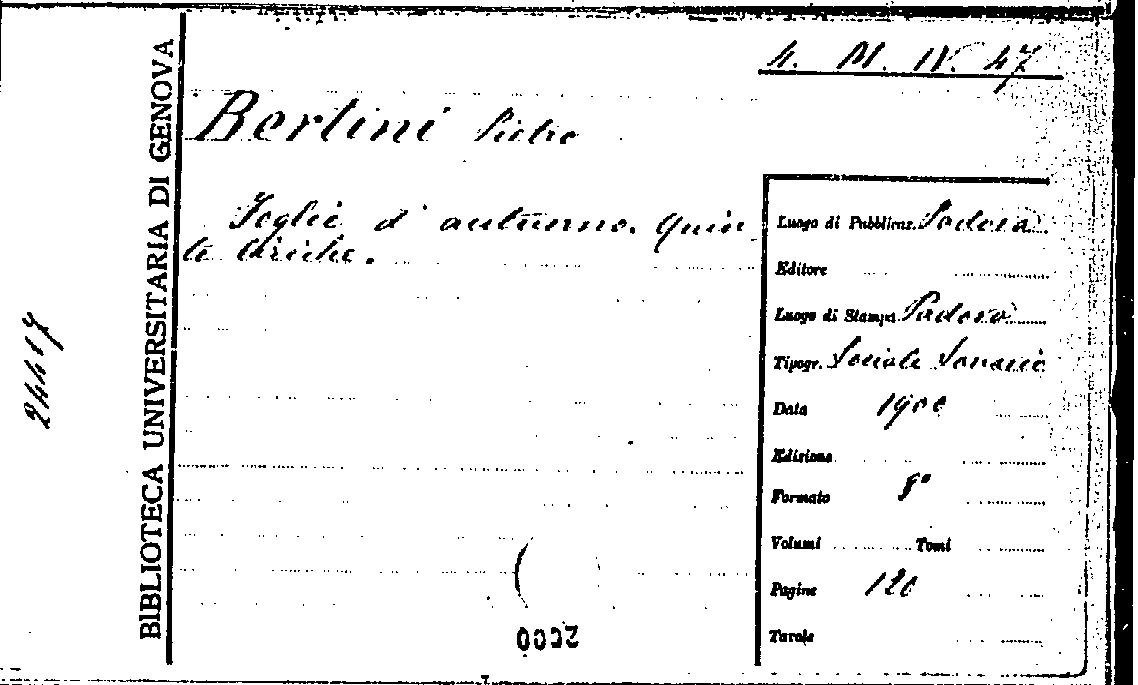 4. M. IV. 47
BIBLIOTECA UNIVERSITARIA DI GENOVA
24417
Bertini Pietro
Foglie d'autunno. Quin
te liriche.
Luogo di Pubblicaz. Padova
Editore
Luogo di Stampa Padova
Tipogr. Sociale
Data 1900
Edizione
Formato 8°
Volumi Tomi
Pagine 120
Tavole
2000